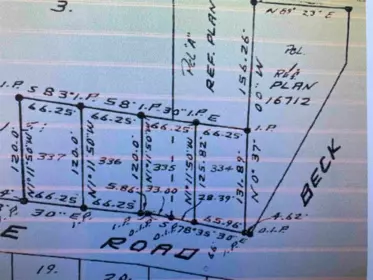 3.
N 69° 23' E
POL. "A"
REF. PLAN
156.26'
00" W
POL.
1
REF.
PLAN
16712
I.P.
S 83°
I.P.
58'
I.P.
30"
I.P.
E
66.25'
66.25
66.25'
66.25'
I.P.
120.0'
337
N1°11'50"W
120.0'
336
N1°11'50"W
120.0'
335
N1°11'50"W
125.82'
334
131.89'
N 0° 37'
BECK
5.86
33.00
28.39
65.96
4.62'
66.25
66.25
30"
E
I.P.
I.P.
S
78° 35' 30" E
O.I.P.
O.I.P.
E
ROAD
19.
20.